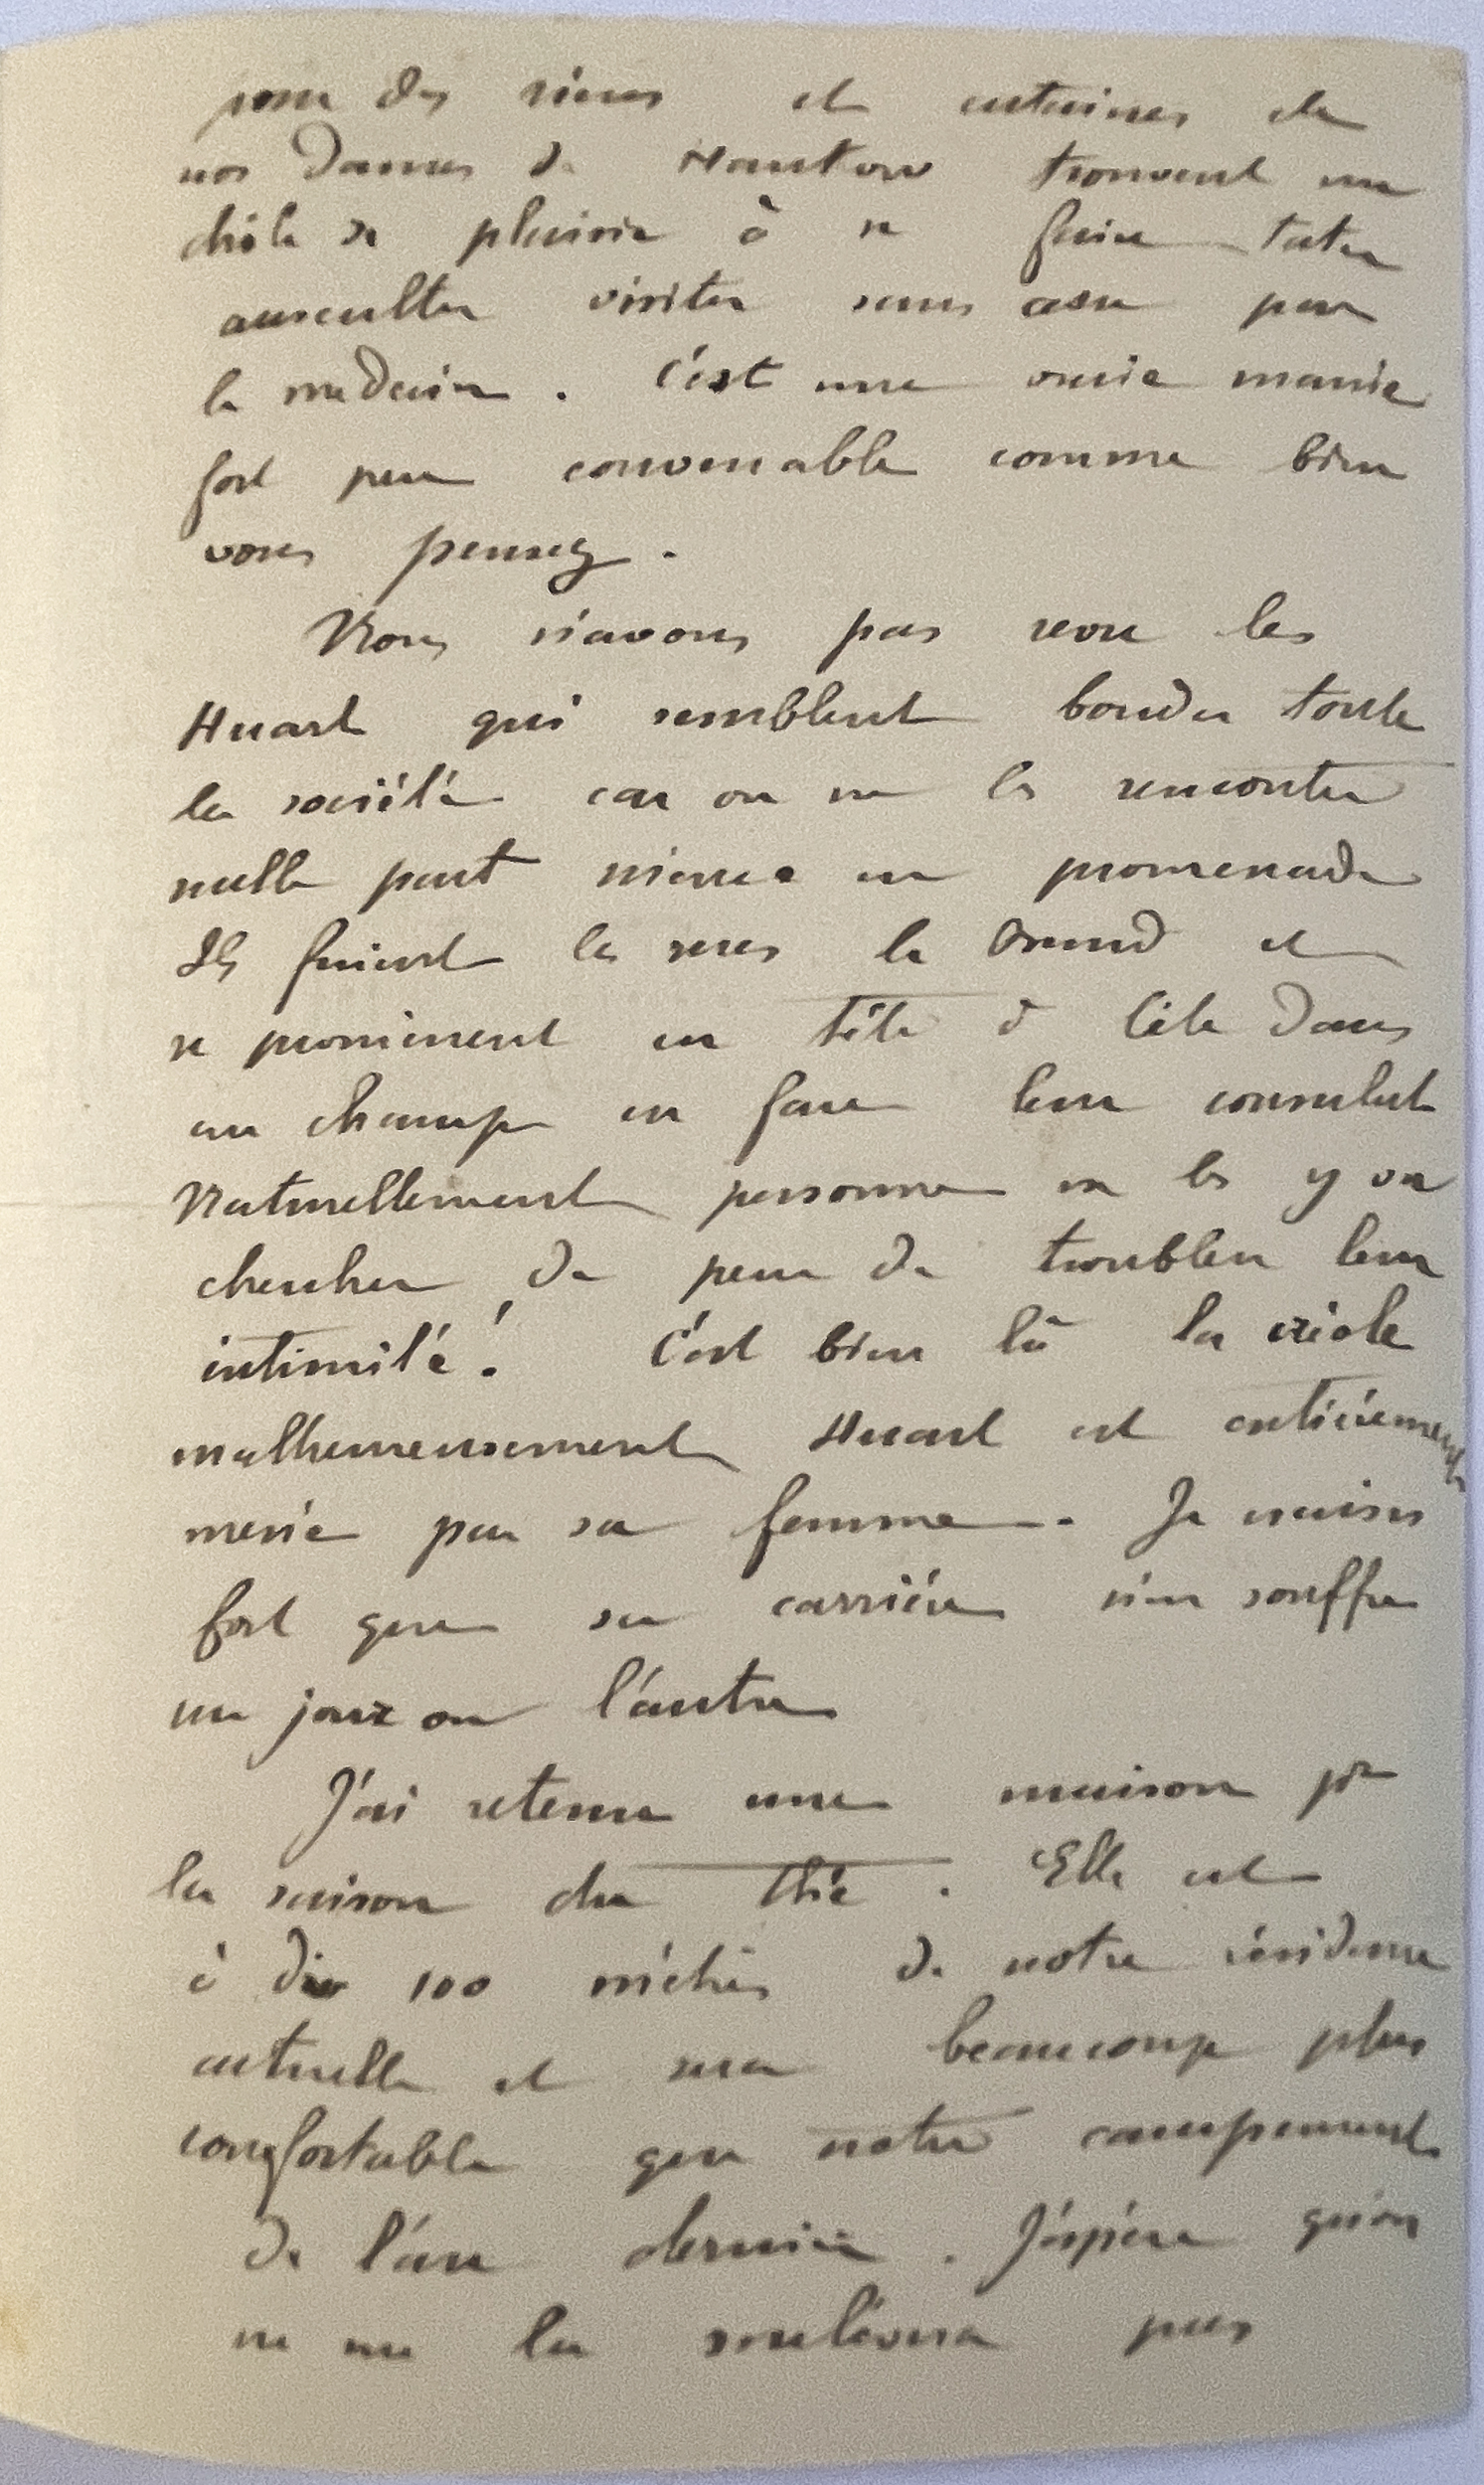 pour des riens et certaines de
nos dames de Hankow trouvent un
drôle de plaisir à se faire tater
ausculter visiter sans cesse par
le medecin. C'est une vraie manie
fort peu convenable comme bien
vous pensez.
Nous n'avons pas revu les
Huart qui semblent bouder toute
la société car on ne les rencontre
nulle part même en promenade
Ils fuient les rues le Bund et
se promènent en tête à tête dans
un champ en face leur consulat
Naturellement personne ne les y va
chercher de peur de troubler leur
intimité! C'est bien là la créole
malheureusement Huart est entièrement
mené par sa femme. Je crains
fort que sa carrière n'en souffre
un jour ou l'autre
J'ai retenu une maison pr
la saison du thé. Elle est
à dix 100 mètres de notre résidence
actuelle et sera beaucoup plus
confortable que notre campement
de l'an dernier. J'espère qu'on
ne me la soulèvera pas